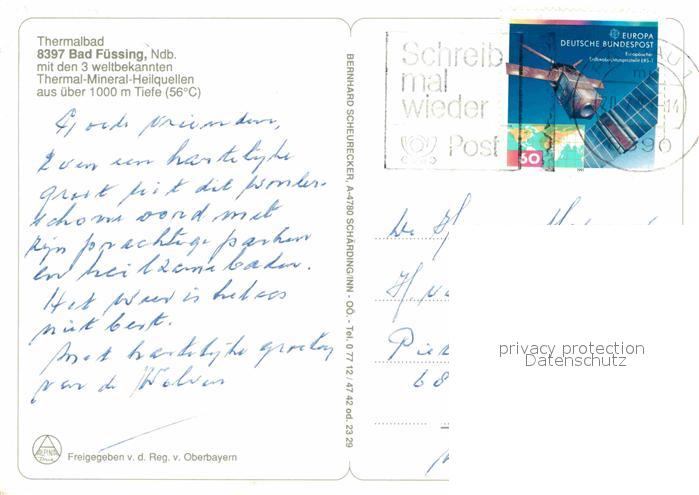 Thermalbad
8397 Bad Füssing, Ndb.
mit den 3 weltbekannten
Thermal-Mineral-Heilquellen
aus über 1000 m Tiefe (56°C)
Goede vrienden,
Even een hartelijke
groet uit dit wonder-
schone oord met
zijn prachtige parken
en heilzame baden.
Het weer is helaas
niet best.
Met hartelijke groeten
van de
Freigegeben v. d. Reg. v. Oberbayern
BERNHARD SCHEURECKER, A-4780 SCHÄRDING/INN - OÖ. - Tel. 0 77 12 / 47 42 od. 23 29
Schreib
mal
wieder
Post
EUROPA
DEUTSCHE BUNDESPOST
Europäischer
Erderkundungssatellit ERS-1
60
privacy protection
Datenschutz